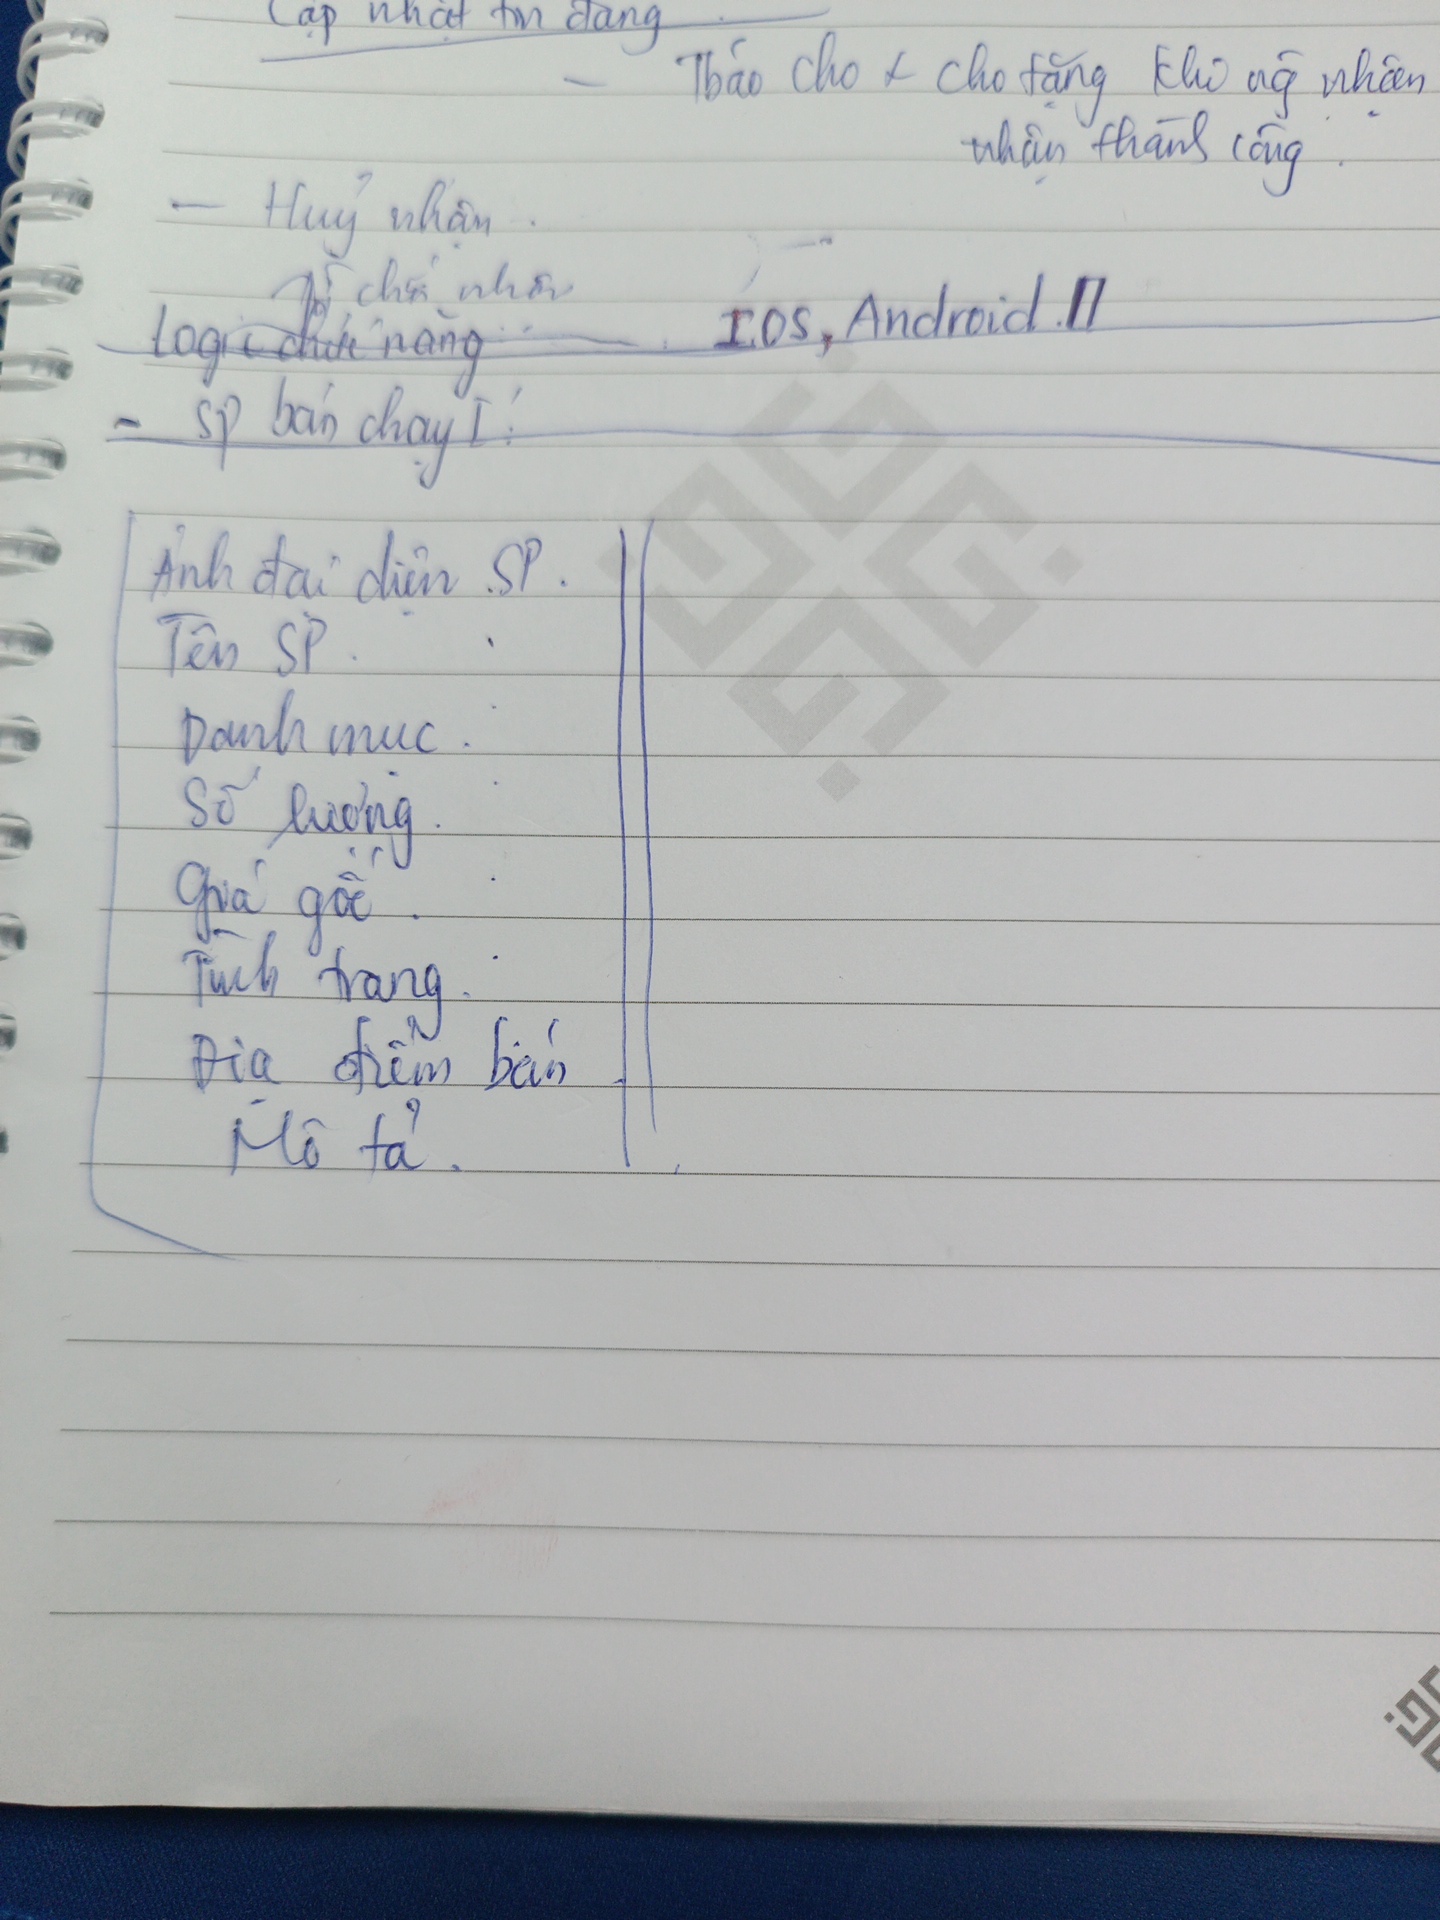 Cập nhật tin đăng
- Tbáo cho & cho tặng khi ng nhận
nhận thành công.
- Huỷ nhận.
chối nhận
Logic chức năng
IOS, Android.
- SP bán chạy I:
Ảnh đại diện SP.
Tên SP.
Danh mục.
Số lượng.
Giá gốc.
Tình trạng.
Địa điểm bán.
Mô tả.